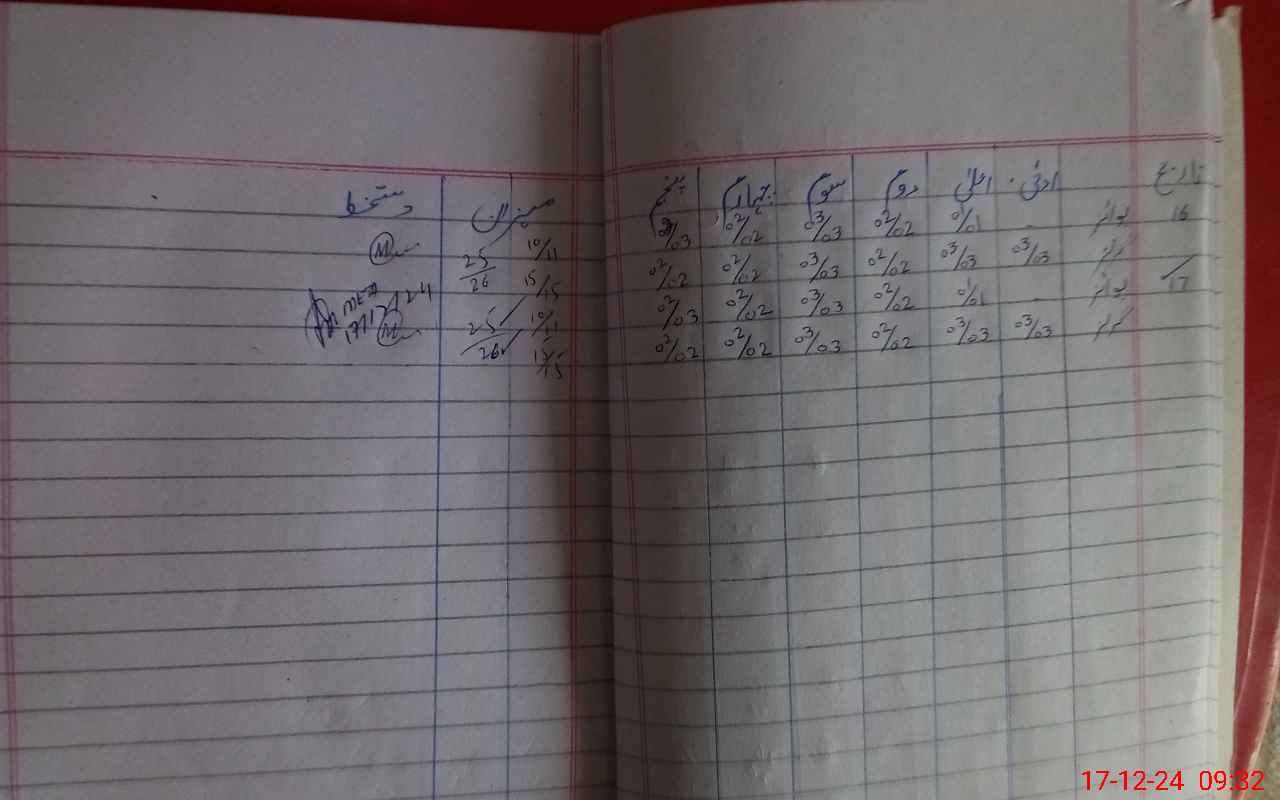 تاریخ ادنیٰ اعلیٰ دوم سوم چہارم پنجم میزان دستخط
16 بوائز - 01/01 02/02 03/03 02/02 03/03 10/11 25/26
گرلز 03/03 03/03 02/02 03/03 02/02 02/02 15/15
17 بوائز - 01/01 02/02 03/03 02/02 02/03 10/11 25/26
گرلز 03/03 03/03 02/02 03/03 02/02 02/02 15/15
17/12/24
17-12-24 09:32